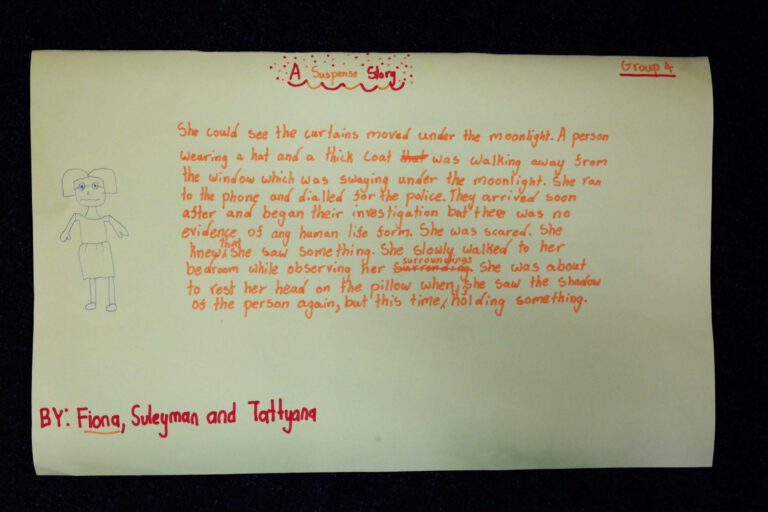 A Suspense Story
Group 4
She could see the curtains moved under the moonlight. A person
wearing a hat and a thick coat that was walking away from
the window which was swaying under the moonlight. She ran
to the phone and dialled for the police. They arrived soon
after and began their investigation but there was no
evidence of any human life form. She was scared. She
knew that she saw something. She slowly walked to her
bedroom while observing her surronding surroundings. She was about
to rest her head on the pillow when, she saw the shadow
of the person again, but this time, holding something.
BY: Fiona, Suleyman and Tattyana